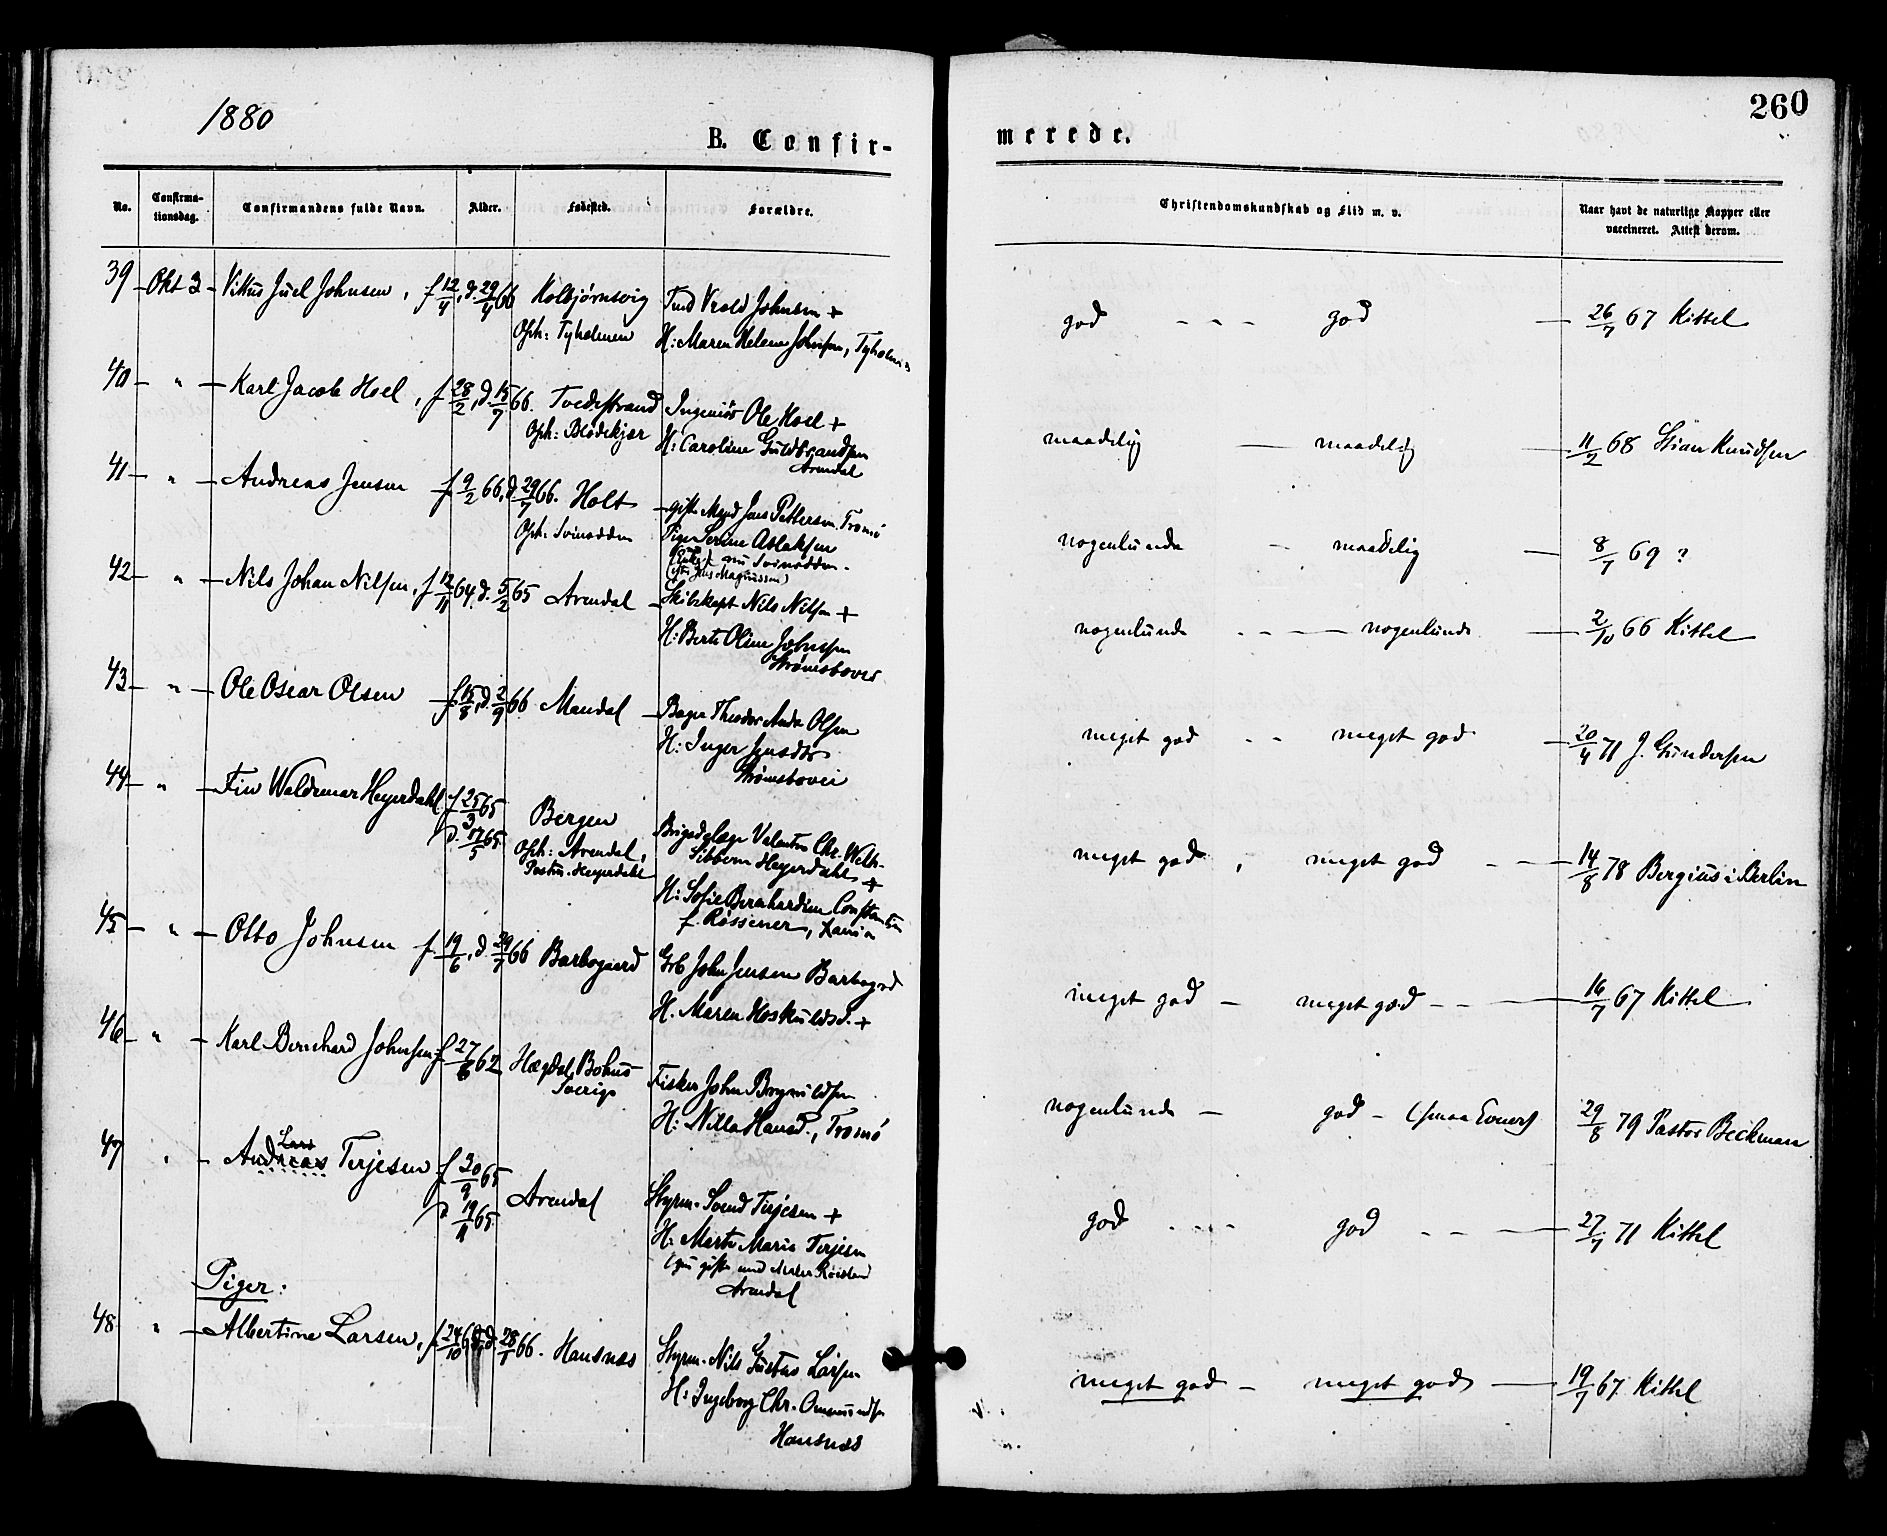 1880
260
B. Confir-
merede.
No.
Confirma-
tionsdag.
Confirmandens fulde Navn.
Alder.
Fødested.
Forældre.
Christendomskundskab og Flid m. v.
Naar havt de naturlige Kopper eller
vaccineret. Attest derom.
39 Okt 3 Vittus Juel Johnsen, f 12/4, d. 29/4 66 Kolbjørnsvig
Oph: Tyholmen
H: Maren Helene Johnsen, Tyholmen
god - - - god — 26/7 67 Kittel
40 " Karl Jacob Hoel, f 28/2, d. 15/7 66. Tvedestrand Ingeniør Ole Hoel +
Oph: Blødekjær H: Caroline Guldbrandsen
Arendal
maadelig — maadelig — 11/2 68 Stian Knudsen
41 " Andreas Jensen f 9/2 66, d. 29/7 66. Holt gift Mand Jens Pettersen Tromø
Oph: Svinodden Pige Serine Aslaksen
nu Svinodden.
(gift Jens Magnussen)
nogenlunde - maadelig — 8/7 69 ?
42 " Nils Johan Nilsen, f 12/11 64, d. 5/2 65 Arendal Skibskapt Nils Nilsen +
H: Berte Oline Johnsen
Strømsboveien
nogenlunde - - — nogenlunde — 2/10 66 Kittel
43 " Ole Oscar Olsen f 15/8, d. 2/9 66 Mandal Bager Theodor Olsen
H: Inger Jensdtr
Strømsbovei
meget god - - meget god — 20/4 71 J. Gundersen
44 " Fin Waldemar Heyerdahl f 25/3 65
d. 17/5 65
Bergen
Oph: Arendal,
Postm. Heyerdahl
Brigadelæge Valentin Chr. Wilh.
Sibbern Heyerdahl +
H: Sofie Bernhardine Constantin
f. Røssener,
meget god, meget god - - — 14/8 78 Bergius i Berlin
45 " Otto Johnsen f 19/6, d. 29/7 66 Barbogaard Grb John Jensen Barbogrd
H. Maren Hoskuldsd. +
meget god - meget god - - — 16/7 67 Kittel
46 " Karl Bernhard Johnsen f 27/6 62 Hægdal, Bohus
Sverige
Fisker John Bryniildsen
H: Nilla Hansd., Tromø
nogenlunde - god - (smaa Evner) 29/8 79 Pastor Beckman
47 " Lars
Andreas Terjesen f 30/9 65
d. 19/11 65
Arendal
Styrm. Svend Terjesen +
H: Marte Marie Terjesen
(nu gift med
Arendal
god - - - god - - — 27/7 71 Kittel
Piger:
48 " Albertine Larsen, f 24/10 65, d. 28/1 66. Hansnæs Styrm. Nils Gustav Larsen
H: Ingeborg Chr. Ommundsen
Hansnæs
meget god - meget god — 19/7 67 Kittel